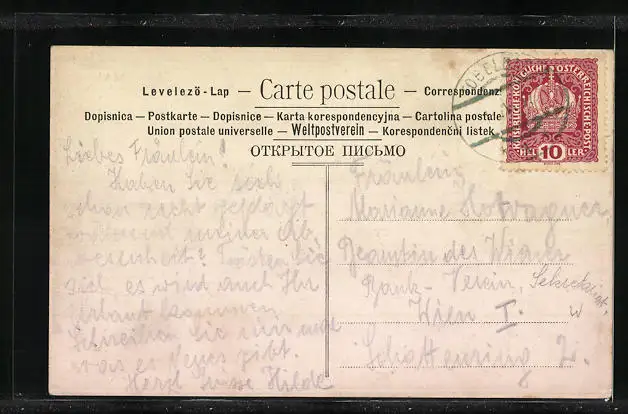 Levelező-Lap — Carte postale — Correspondenz
Dopisnica — Postkarte — Dopisnice — Karta korespondencyjna — Cartolina postale
Union postale universelle — Weltpostverein — Korespondenční listek
ОТКРЫТОЕ ПИСЬМО
KAISERLICHE KÖNIGLICHE ÖSTERREICHISCHE POST
HEL 10 LER
Liebes Fräulein!
Haben Sie sich
schon recht
während meiner Ab-
wesenheit? Trösten Sie
sich, es wird auch Ihr
Urlaub kommen.
Schreiben Sie mir mal
was es Neues gibt.
Herzl. Grüsse Hilde
Fräulein
Marianne
Beamtin des Wiener
Bank-Verein, Sekretariat,
Wien I.
Schottenring 2.